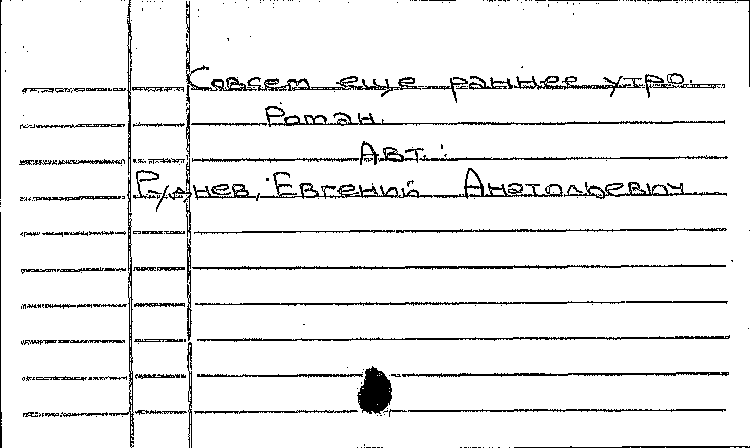 Совсем еще раннее утро.
Роман.
Авт.:
Руднев, Евгений Анатольевич